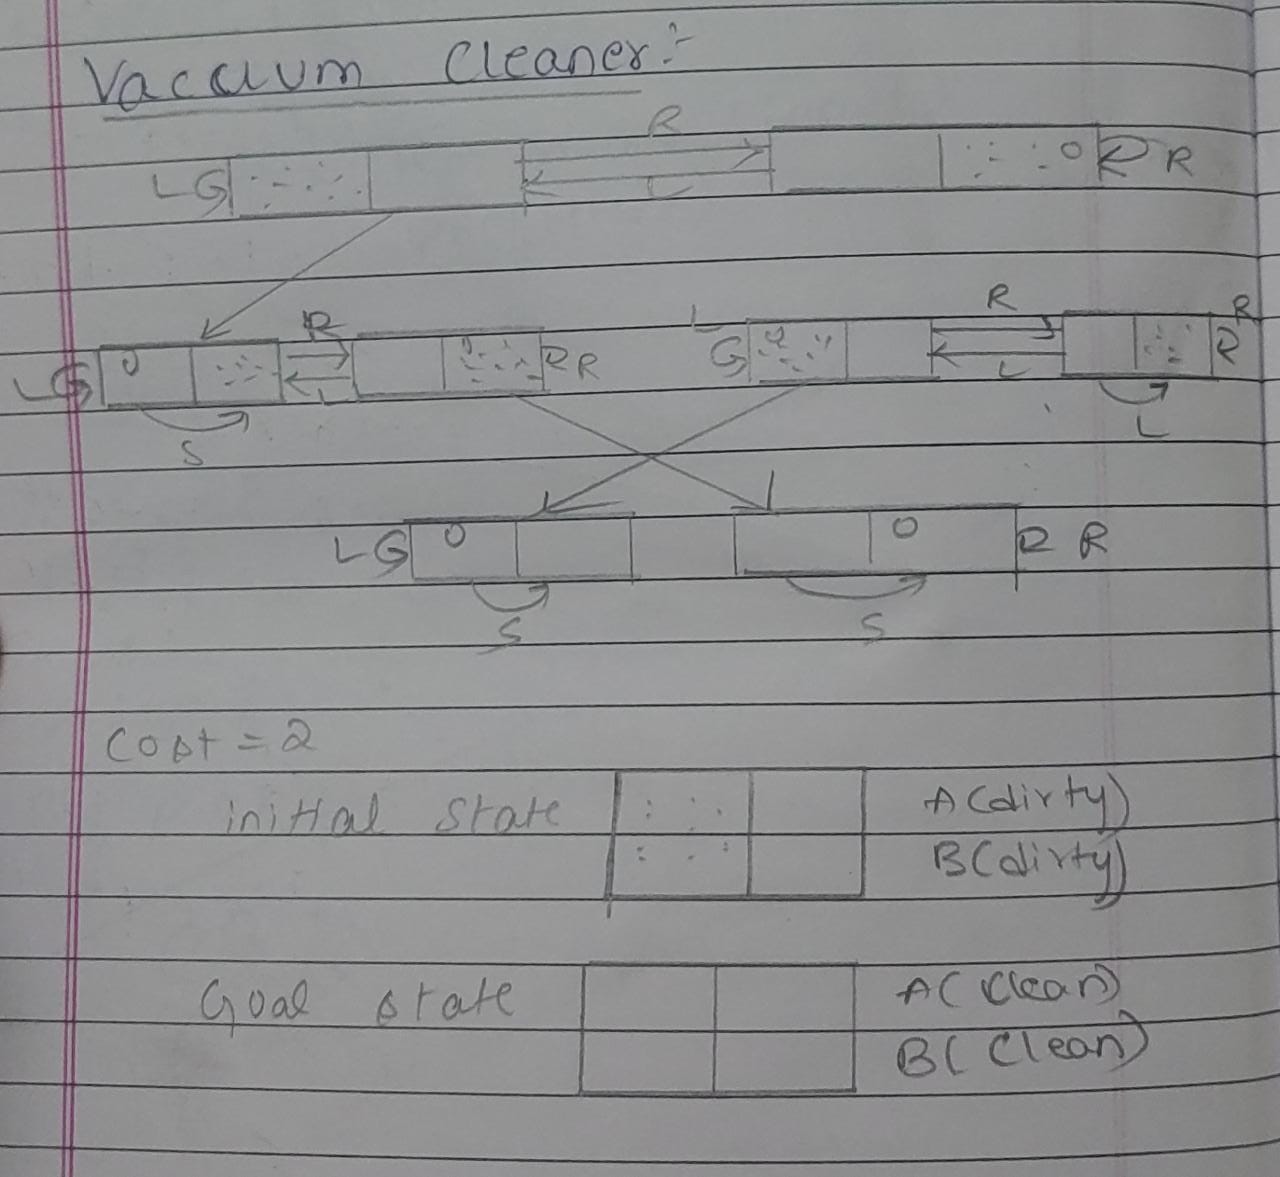 Vacuum Cleaner:-
R
LG R
L
R R
LG R
L L G L R
S L
LG R R
S S
Cost = 2
initial state A(dirty)
B(dirty)
Goal state A(Clean)
B(Clean)